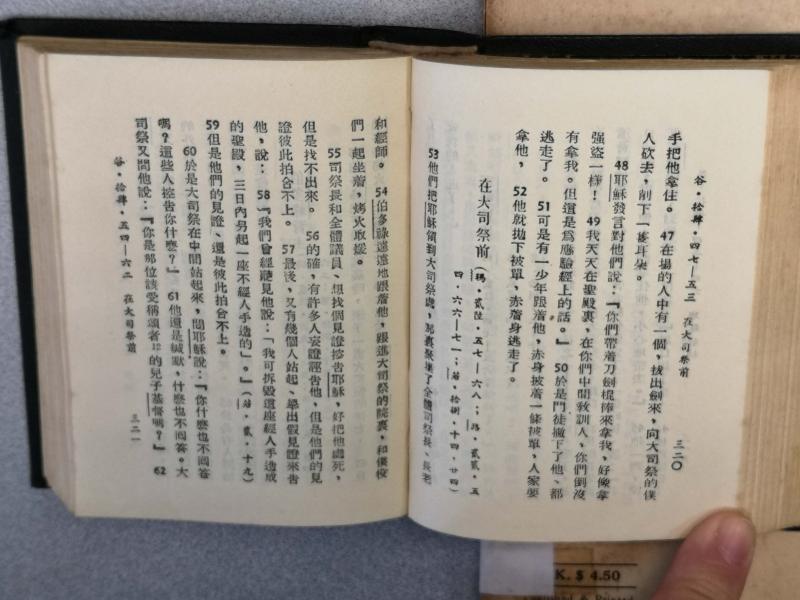 谷・拾肆・四七—五三　在大司祭前　三二〇
手把他拿住。　47在場的人中有一個，拔出劍來，向大司祭的僕
人砍去，削下一隻耳朵。
48耶穌發言對他們說：『你們帶着刀劍棍棒來拿我，好像拿
强盜一樣！　49我天天在聖殿裏，在你們中間教訓人，你們倒沒
有拿我。但這是爲應驗經上的話。』　50於是門徒撇下了他、都
逃走了。　51可是有一少年跟着他，赤身披着一條被單，人家要
拿他，　52他就拋下被單，赤着身逃走了。
在大司祭前（瑪・貳陸・五七—六八；路・貳貳・五
四・六六—七一；若・拾捌・十四・廿四）
53他們把耶穌領到大司祭處，那裏聚集了全體司祭長、長老
和經師。　54伯多祿遠遠地跟着他，跟進大司祭的院裏，和僕役
們一起坐着，烤火取煖。
55司祭長和全體議員、想找個見證控吿耶穌，好把他處死，
但是找不出來。　56的確，有許多人妄證誣吿他，但是他們的見
證彼此拍合不上。　57最後，又有幾個人站起、舉出假見證來吿
他，說：　58『我們曾經聽見他說：「我可拆毀這座經人手造成
的聖殿，三日內另起一座不經人手造的」。』（若・貳・十九）
59但是他們的見證、還是彼此拍合不上。
60於是大司祭在中間站起來，問耶穌說：『你什麼也不囘答
嗎？這些人控吿你什麼？』　61他還是緘默，什麼也不囘答。大
司祭又問他說：『你是那位該受稱頌者的兒子基督嗎？』　62
谷・拾肆・五四—六二　在大司祭前　三二一
K. $ 4.50